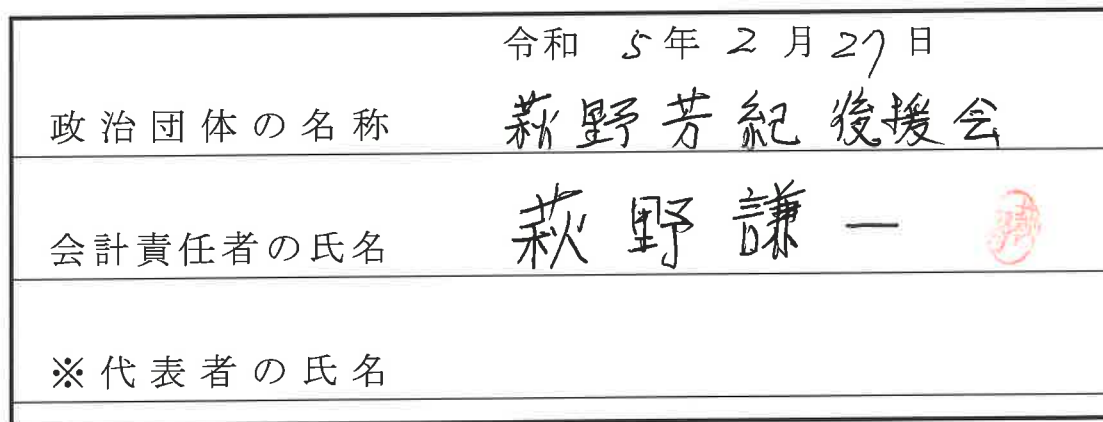 令和 5年 2月 27日
政治団体の名称 萩野芳紀後援会
会計責任者の氏名 萩野謙一
※代表者の氏名